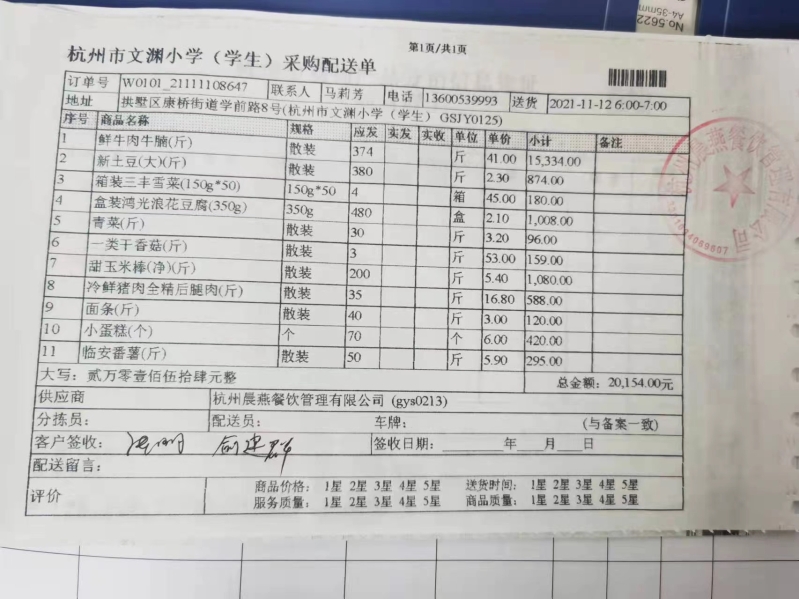 No.5622
A4-35mm
第1页/共1页
杭州市文渊小学（学生）采购配送单
订单号 W0101_21111108647 联系人 马莉芳 电话 13600539993 送货 2021-11-12 6:00-7:00
地址 拱墅区康桥街道学前路8号(杭州市文渊小学（学生） GSJY0125)
序号 商品名称 规格 应发 实发 实收 单位 单价 小计 备注
1 鲜牛肉牛腩(斤) 散装 374 斤 41.00 15,334.00
2 新土豆(大)(斤) 散装 380 斤 2.30 874.00
3 箱装三丰雪菜(150g*50) 150g*50 4 箱 45.00 180.00
4 盒装鸿光浪花豆腐(350g) 350g 480 盒 2.10 1,008.00
5 青菜(斤) 散装 30 斤 3.20 96.00
6 一类干香菇(斤) 散装 3 斤 53.00 159.00
7 甜玉米棒(净)(斤) 散装 200 斤 5.40 1,080.00
8 冷鲜猪肉全精后腿肉(斤) 散装 35 斤 16.80 588.00
9 面条(斤) 散装 40 斤 3.00 120.00
10 小蛋糕(个) 个 70 个 6.00 420.00
11 临安番薯(斤) 散装 50 斤 5.90 295.00
大写：贰万零壹佰伍拾肆元整 总金额：20,154.00元
供应商 杭州晨燕餐饮管理有限公司 (gys0213)
分拣员： 配送员： 车牌： (与备案一致)
客户签收： 签收日期：____年____月____日
配送留言：
评价 商品价格： 1星 2星 3星 4星 5星 送货时间： 1星 2星 3星 4星 5星
服务质量： 1星 2星 3星 4星 5星 商品质量： 1星 2星 3星 4星 5星